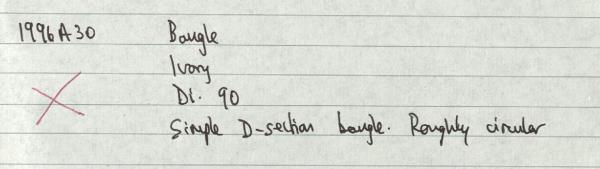 1996A30 Bangle
Ivory
Di. 90
Simple D-section bangle. Roughly circular